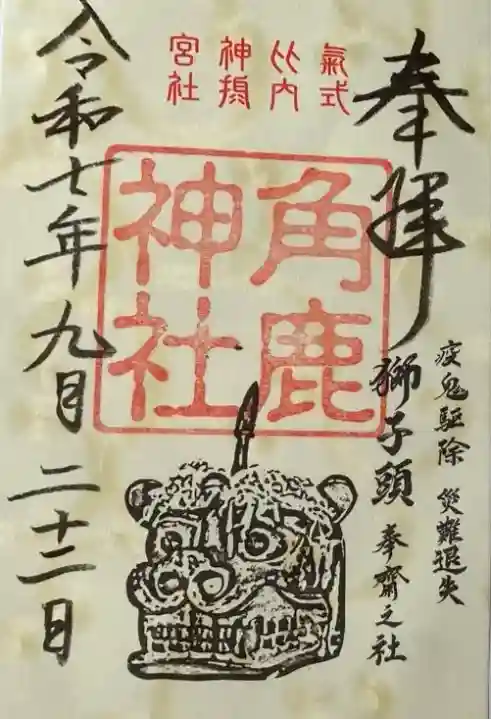 奉拝
疫鬼驅除 災難退失
獅子頭 奉齋之社
氣比神宮
式内摂社
角鹿
神社
令和七年九月二十二日